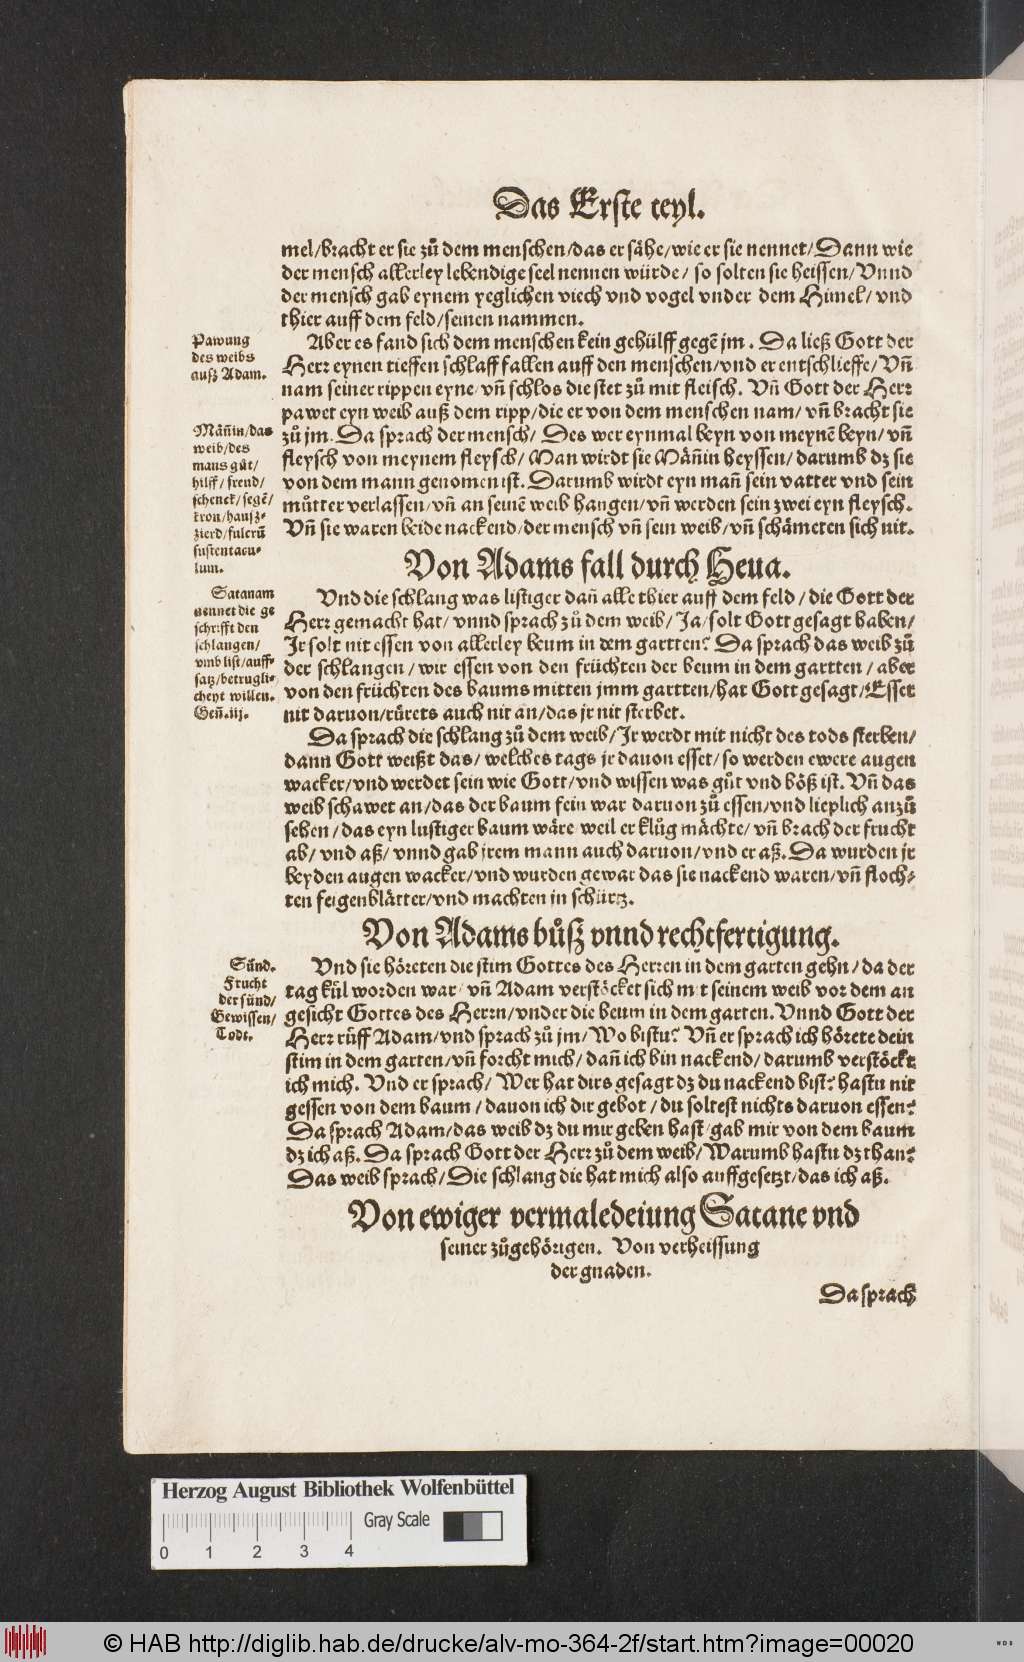 Das Erste teyl.
mel/bracht er sie zů dem menschen/das er sähe/wie er sie nennet/Dann wie
der mensch allerley lebendige seel nennen würde/ so solten sie heissen/Vnnd
der mensch gab eynem yeglichen viech vnd vogel vnder dem Himel/ vnd
thier auff dem feld/seinen nammen.
Pawung
des weibs
auß Adam.
Aber es fand sich dem menschen kein gehülff gegẽ jm. Da ließ Gott der
Herr eynen tieffen schlaff fallen auff den menschen/vnd er entschlieffe/Vñ
nam seiner rippen eyne/vñ schlos die stet zů mit fleisch. Vñ Gott der Herr
pawet eyn weib auß dem ripp/die er von dem menschen nam/ vñ bracht sie
zů jm. Da sprach der mensch/ Des wer eynmal beyn von meynẽ beyn/ vñ
fleysch von meynem fleysch/ Man wirdt sie Mäñin heyssen/ darumb dz sie
von dem mann genomen ist. Darumb wirdt eyn mañ sein vatter vnd sein
můtter verlassen/vñ an seinẽ weib hangen/vñ werden sein zwei eyn fleysch.
Vñ sie waren beide nackend/der mensch vñ sein weib/vñ schämeten sich nit.
Mäñin/das
weib/des
mans gůt/
hilff/ freud/
schenck/ segẽ/
kron/hausz-
zierd/fulcrũ
sustentacu-
lum.
Von Adams fall durch Heua.
Satanam
nennet die ge
schrifft den
schlangen/
vmb list/auff-
satz/betrugli-
cheyt willen.
Geñ.iij.
Vnd die schlang was listiger dañ alle thier auff dem feld/ die Gott der
Herr gemacht hat/ vnnd sprach zů dem weib/ Ja/solt Gott gesagt haben/
Ir solt nit essen von allerley beum in dem gartten? Da sprach das weib zů
der schlangen/ wir essen von den früchten der beum in dem gartten/ aber
von den früchten des baums mitten jmm gartten/hat Gott gesagt/Esset
nit daruon/rürets auch nit an/das jr nit sterbet.
Da sprach die schlang zů dem weib/Ir werdt mit nicht des tods sterben/
dann Gott weißt das/ welches tags jr dauon esset/so werden ewere augen
wacker/vnd werdet sein wie Gott/vnd wissen was gůt vnd böß ist. Vñ das
weib schawet an/das der baum fein war daruon zů essen/vnd lieplich anzů
sehen/das eyn lustiger baum wäre weil er klůg mächte/ vñ brach der frucht
ab/ vnd aß/ vnnd gab jrem mann auch daruon/vnd er aß. Da wurden jr
beyden augen wacker/vnd wurden gewar das sie nackend waren/vñ floch-
ten feigenblätter/vnd machten jn schürtz.
Von Adams bůß vnnd rechtfertigung.
Sünd.
Frucht
der sünd/
Gewissen/
Todt.
Vnd sie höreten die stim Gottes des Herren in dem garten gehn/da der
tag kül worden war/ vñ Adam verstöcket sich mit seinem weib vor dem an
gesicht Gottes des Herrn/vnder die beum in dem garten. Vnnd Gott der
Herr rüff Adam/vnd sprach zů jm/Wo bistu? Vñ er sprach ich hörete dein
stim in dem garten/vñ forcht mich/ dañ ich bin nackend/ darumb verstöckt
ich mich. Vnd er sprach/ Wer hat dirs gesagt dz du nackend bist? hastu nit
gessen von dem baum/dauon ich dir gebot/du soltest nichts daruon essen?
Da sprach Adam/das weib dz du mir geben hast/gab mir von dem baum
dz ich aß. Da sprach Gott der Herr zů dem weib/Warumb hastu dz than?
Das weib sprach/Die schlang die hat mich also auffgesetzt/das ich aß.
Von ewiger vermaledeiung Satane vnd
seiner zůgehörigen. Von verheissung
der gnaden.
Da sprach
Herzog August Bibliothek Wolfenbüttel
Gray Scale
0 1 2 3 4
© HAB http://diglib.hab.de/drucke/alv-mo-364-2f/start.htm?image=00020